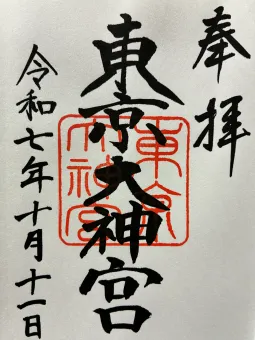 奉拝
東京大神宮
東京大神宮
令和七年十月十一日